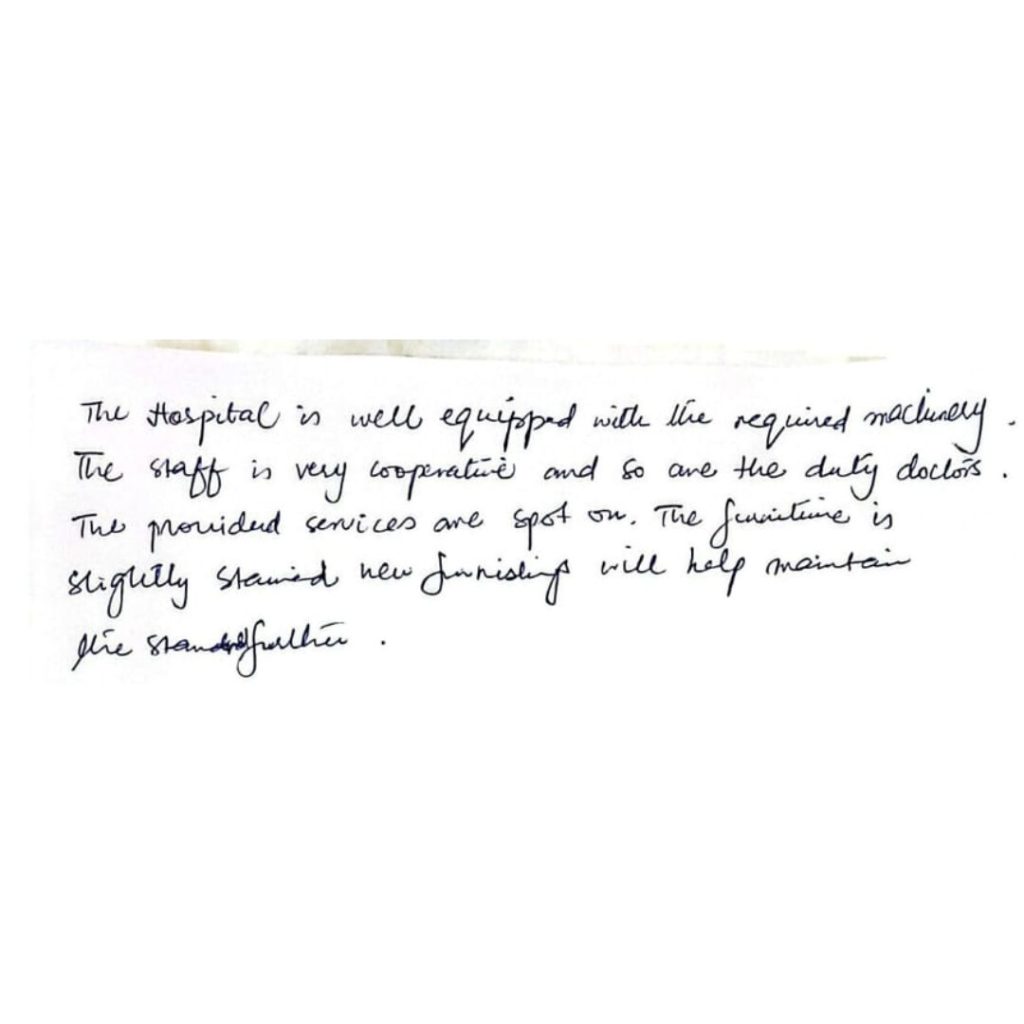 The Hospital is well equipped with the required machinery.
The staff is very cooperative and so are the duty doctors.
The provided services are spot on. The furniture is
slightly stained new furnishings will help maintain
the standard further.